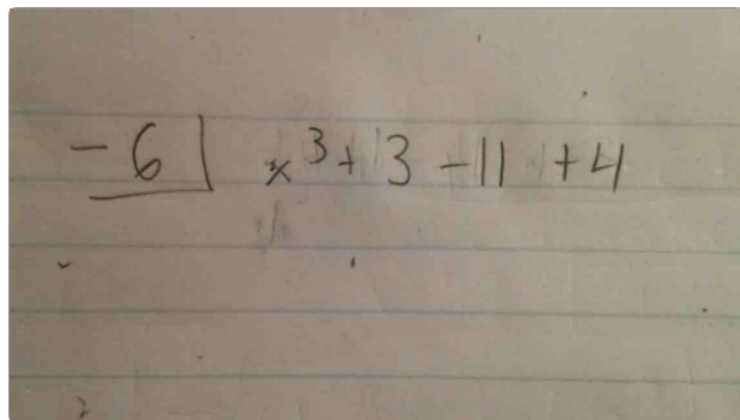 -6| x³ + 3 - 11 + 4